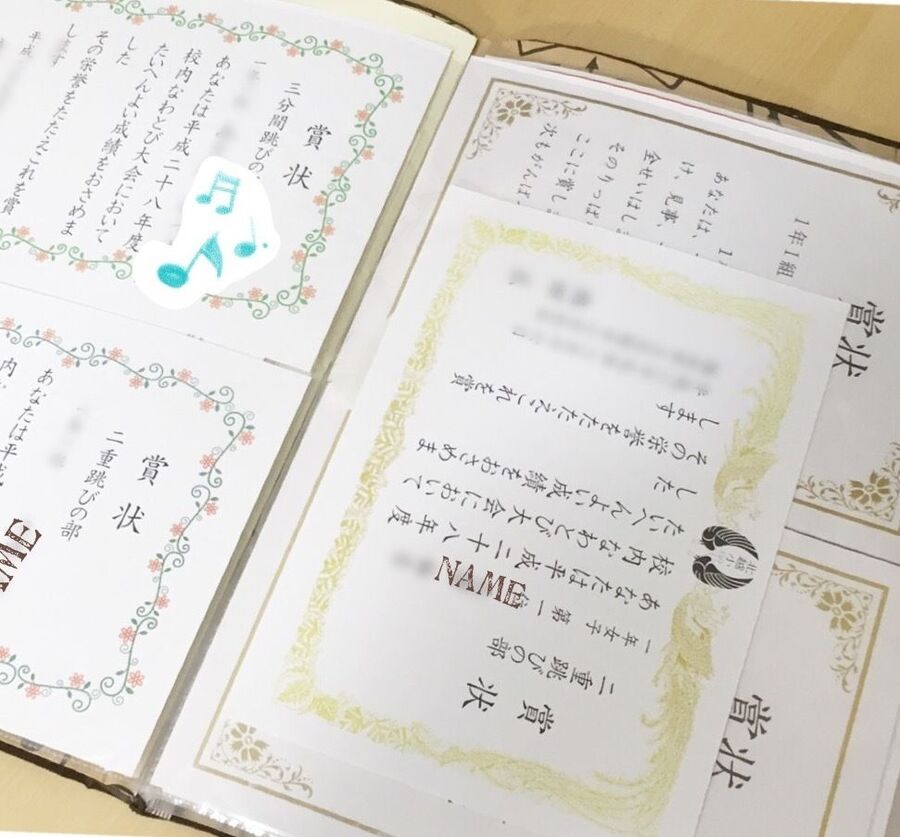 賞状
三分間跳びの
あなたは平成二十八年度
校内なわとび大会において
たいへんよい成績をおさめま
した
その栄誉をたたえこれを賞
します
平成
賞状
二重跳びの部
あなたは平成
賞状
1年1組
あなたは、
け、見事、
金せいはし
そのりっぱ
ここに賞し
次もがんば
賞状
二重跳びの部
一年女子 第一位
NAME
あなたは平成二十八年度
校内なわとび大会において
たいへんよい成績をおさめま
した
その栄誉をたたえこれを賞
します
賞状